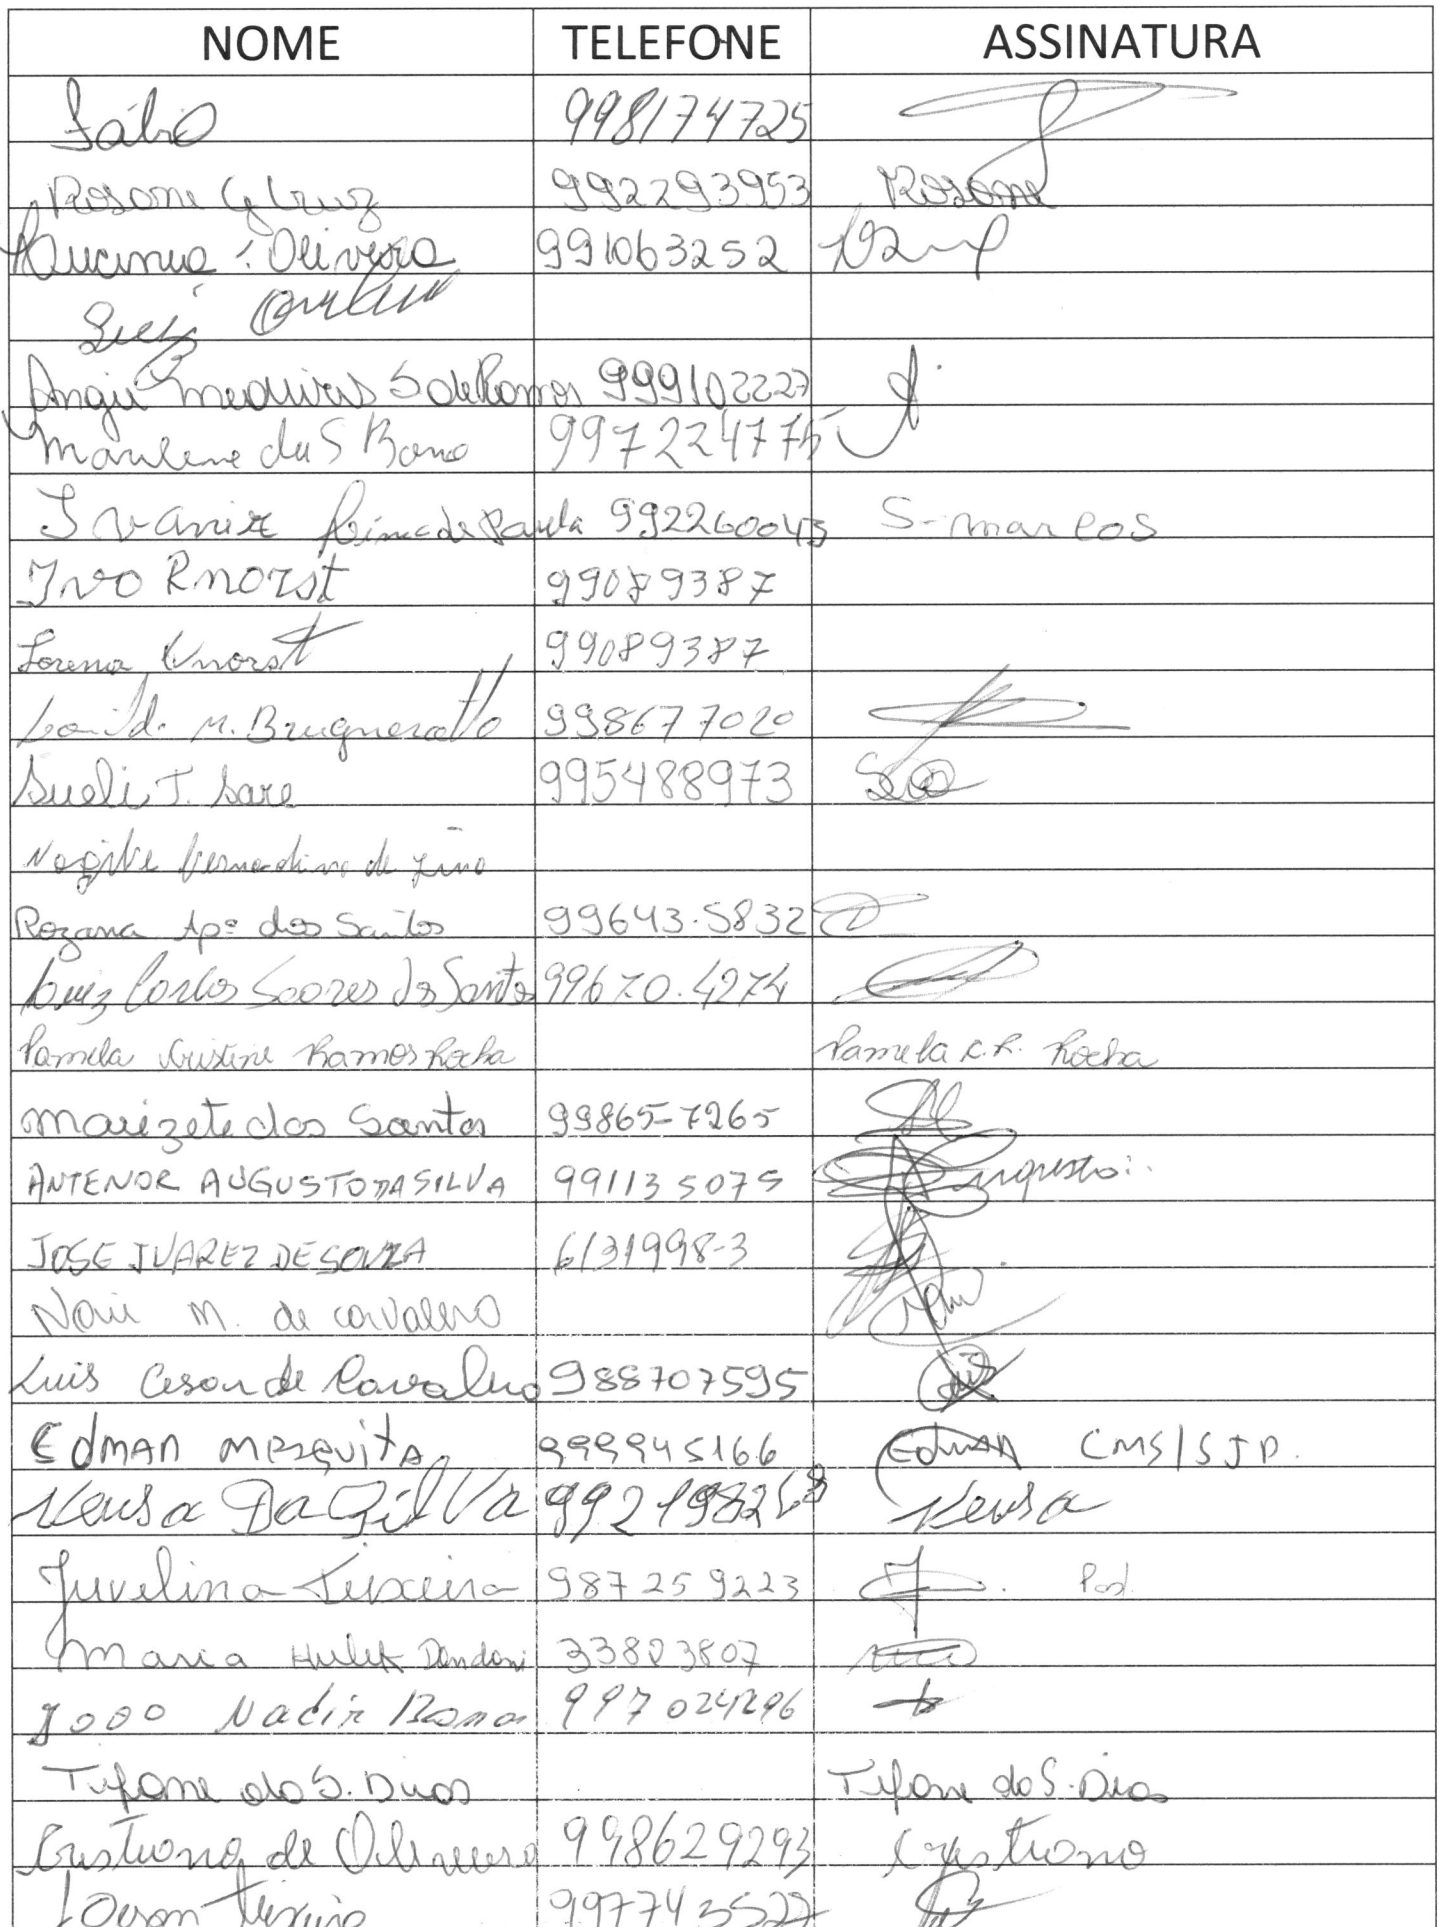 NOME TELEFONE ASSINATURA
Fábio 998174725
Rosane G Cruz 992293953 Rosane
Oliveira 991063252
Luiz
Medeiros S de Ramos 999102227
Marlene da S 997224775
Ivanir de Paula 992260043 S-marcos
Ivo Rnorst 99089387
Lorena Knorst 99089387
M. Brugnerotto 998677020
Sueli T. 995488973
de
Rozana Apª dos Santos 99643.5832
Luiz Carlos Soares dos Santos 99670.4274
Pamela Kristine Ramos Rocha Pamela K.R. Rocha
Marizete dos Santos 99865-7265
ANTENOR AUGUSTO DA SILVA 991135075 Augusto
JOSE JUAREZ DE SOUZA 6131998-3
M. de carvalho
Luis Cesar de Carvalho 988707595
EDMAN MESQUITA 999945166 EDMAN CMS/SJP.
Neusa Da Silva Neusa
Juvelina Teixeira 987259223
Maria 33823807
Joao Nadir 997024296
Tifane do S. Dias Tifane do S. Dias
Cristiano de Oliveira 998629293 Cristiano
Teixeira 997743527